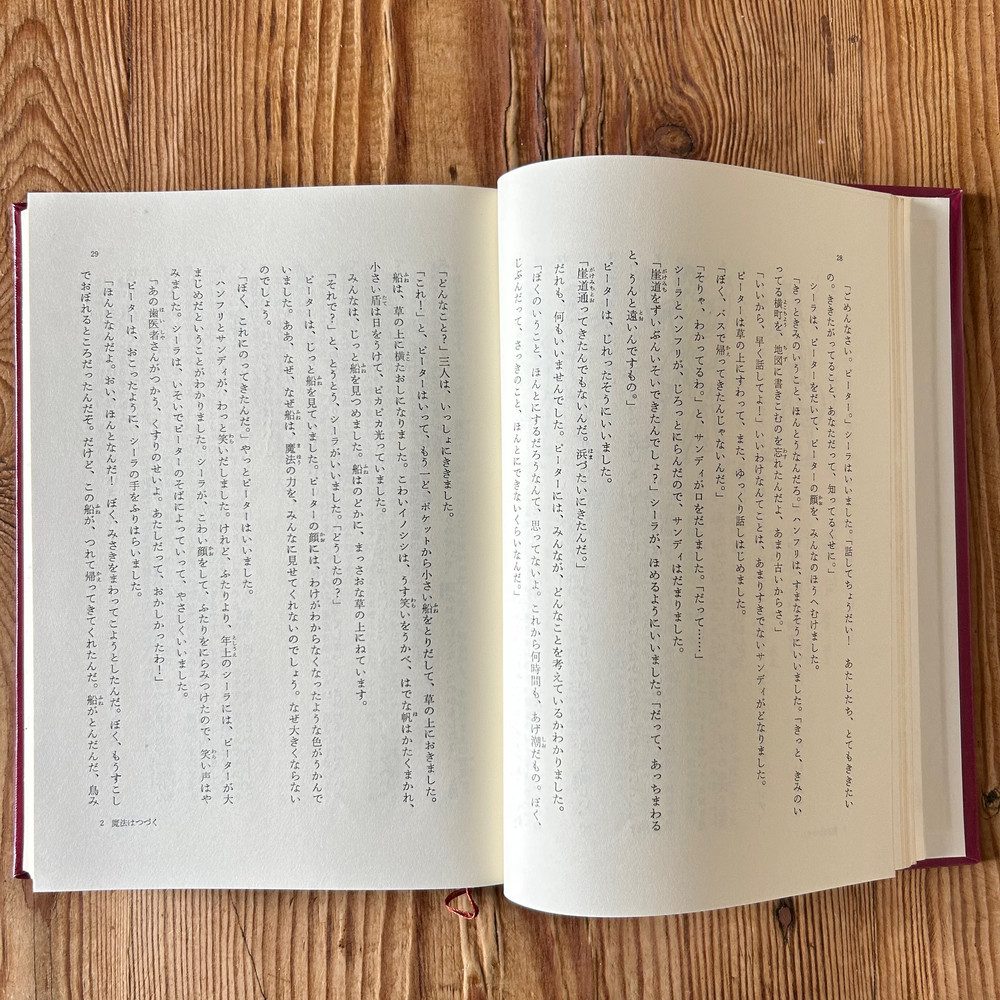 28
「ごめんなさい。ピーター。」シーラはいいました。「話してちょうだい! あたしたち、とてもききたい
の。ききたがってること、あなただって、知ってるくせに。」
シーラは、ピーターをだいて、ピーターの顔を、みんなのほうへむけました。
「きっときみのいうこと、ほんとうなんだろ。」ハンフリは、すまなそうにいいました。「きっと、きみのい
ってる横町を、地図に書きこむのを忘れたんだよ、あまり古いからさ。」
「いいから、早く話してよ!」いいわけなんてことは、あまりすきでないサンディがどなりました。
ピーターは草の上にすわって、また、ゆっくり話しはじめました。
「ぼく、バスで帰ってきたんじゃないんだ。」
「そりゃ、わかってるわ。」と、サンディが口をだしました。「だって……」
シーラとハンフリが、じろっとにらんだので、サンディはだまりました。
「崖道をずいぶんいそいできたんでしょ?」シーラが、ほめるようにいいました。「だって、あっちまわる
と、うんと遠いんですもの。」
ピーターは、じれったそうにいいました。
「崖道通ってきたんでもないんだ。浜づたいにきたんだ。」
だれも、何もいいませんでした。ピーターには、みんなが、どんなことを考えているかわかりました。
「ぼくのいうこと、ほんとにするだろうなんて、思ってないよ。これから何時間も、あげ潮だもの。ぼく、
じぶんだって、さっきのこと、ほんとにできないくらいなんだ。」
「どんなこと?」三人は、いっしょにききました。
「これ!」と、ピーターはいって、もう一ど、ポケットから小さい船をとりだして、草の上におきました。
船は、草の上に横たおしになりました。こわいイノシシは、うす笑いをうかべ、はでな帆はかたくまかれ、
小さい盾は日をうけて、ピカピカ光っていました。
みんなは、じっと船を見つめました。船はのどかに、まっさおな草の上にねています。
「それでう」と、とうとう、シーラがいいました。「どうしたの?」
ピーターは、じっと船を見ていました。ピーターの顔には、わけがわからなくなったような色がうかんで
いました。ああ、なぜ、なぜ船は、魔法の力を、みんなに見せてくれないのでしょう。なぜ大きくならない
のでしょう。
「ぼく、これにのってきたんだ。」やっとピーターはいいました。
ハンフリとサンディが、わっと笑いだしました。けれど、ふたりより、年上のシーラには、ピーターが大
まじめだということがわかりました。シーラが、こわい顔をして、ふたりをにらみつけたので、笑い声はや
みました。シーラは、いそいでピーターのそばによっていって、やさしくいいました。
「あの歯医者さんがつかう、くすりのせいよ。あたしだって、おかしかったわ!」
ピーターは、おこったように、シーラの手をふりはらいました。
「ほんとなんだよ。おい、ほんとなんだ! ぼく、みさきをまわってこようとしたんだ。ぼく、もうすこし
でおぼれるところだったんだぞ。だけど、この船が、つれて帰ってきてくれたんだ。船がとんだんだ、鳥み
29
2 魔法はつづく